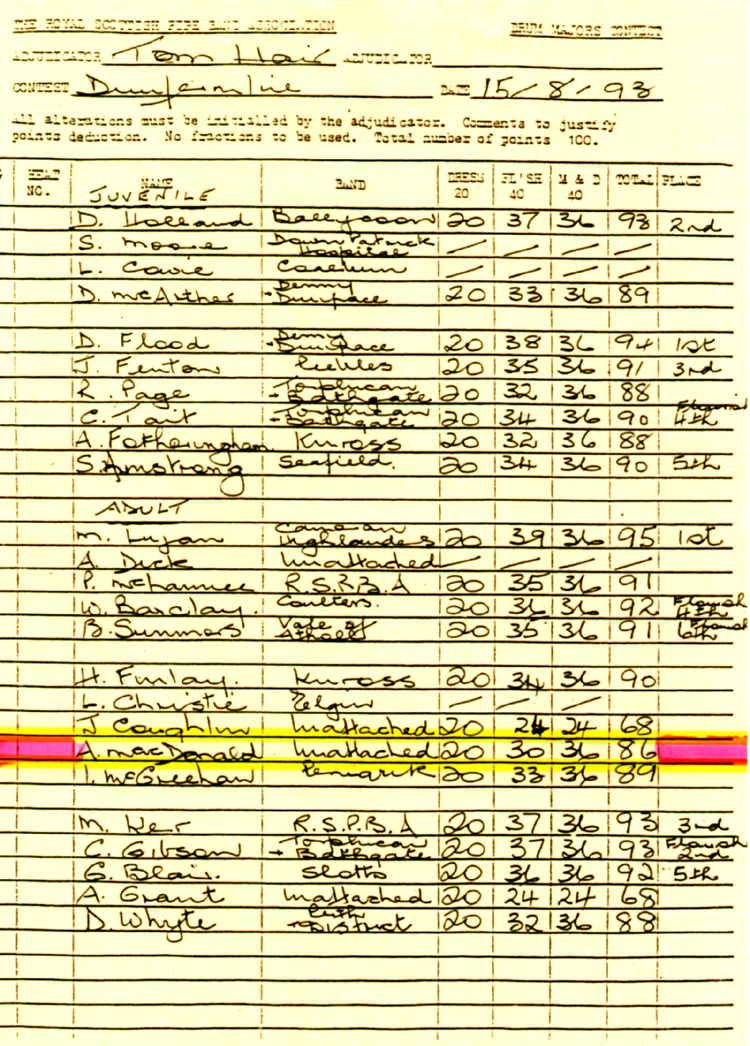 THE ROYAL SCOTTISH PIPE BAND ASSOCIATION DRUM MAJORS CONTEST
ADJUDICATOR Tom Hair ADJUDICATOR
CONTEST Dunfermline DATE 15/8/93
All alterations must be initialled by the adjudicator. Comments to justify
points deduction. No fractions to be used. Total number of points 100.
HEAT NO. NAME BAND DRESS 20 FL'SH 40 M & D 40 TOTAL PLACE
JUVENILE
D. Holland Ballycoan 20 37 36 93 2nd
S. Moore Down Patrick Hospital / / / /
L. Cowie / / / /
D. McArther Denny + Dunipace 20 33 36 89
D. Flood Denny + Dunipace 20 38 36 94 1st
J. Fenton Peebles 20 35 36 91 3rd
R. Page Torphican + Bathgate 20 32 36 88
C. Tait Torphican + Bathgate 20 34 36 90 Flourish 4th
A. Fotheringham Kinross 20 32 36 88
S. Armstrong Seafield. 20 34 36 90 5th
ADULT
M. Highlanders 20 39 36 95 1st
A. Dick Unattached / / / /
P. R.S.P.B.A 20 35 36 91
W. Barclay. Coulters. 20 36 36 92 Flourish 4th
B. Summers Vale of Atholl 20 35 36 91 Flourish 6th
H. Finlay. Kinross 20 34 36 90
L. Christie Elgin / / /
J Coughlin Unattached 20 24 24 68
A. MacDonald Unattached 20 30 36 86
I. McGreehan 20 33 36 89
M. Ker R.S.P.B.A 20 37 36 93 3rd
C. Gibson Torphican + Bathgate 20 37 36 93 Flourish 2nd
G. Blair. Slotts 20 36 36 92 5th
A. Grant Unattached 20 24 24 68
D. Whyte Perth + District 20 32 36 88